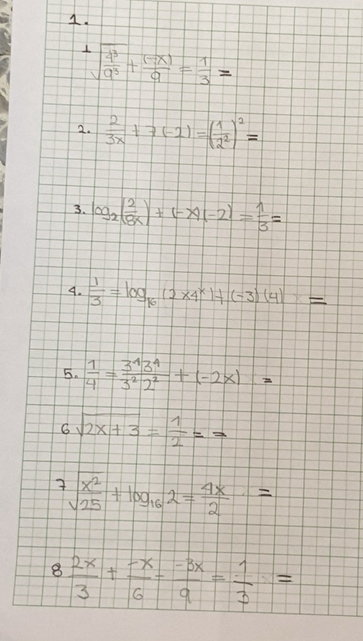 1.
1 √(4³/9³) + (-x)/9 = 1/3 =
2. 2/3x + 7(-2) = (1/2²)² =
3. log₂(2/8x) + (-x)(-2) = 1/3 =
4. 1/3 = log₁₆(2x4ˣ) + (-3)(4) =
5. 1/4 = 3⁴3⁴/3²2² + (-2x) =
6 √2x+3 = 1/2 = =
7 √(x²/25) + log₁₆2 = 4x/2 =
8 2x/3 + -x/6 - -3x/9 = 1/3 =